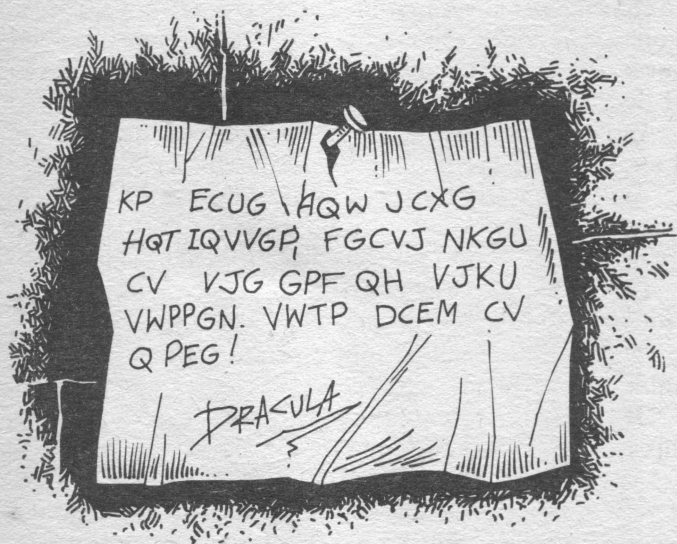 KP ECUG AQW JCXG
HQTIQVVGP, FGCVJ NKGU
CV VJG GPF QH VJKU
VWPPGN. VWTP DCEM CV
QPEG!
DRACULA